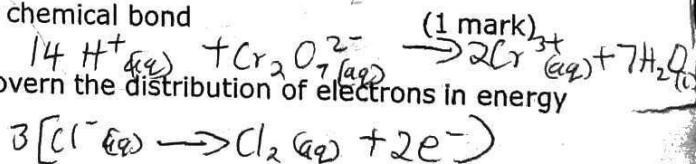 chemical bond (1 mark)
14 H⁺(aq) + Cr₂O₇²⁻(aq) → 2Cr³⁺(aq) + 7H₂O(l)
overn the distribution of electrons in energy
3[Cl⁻(aq) → Cl₂(aq) + 2e⁻)